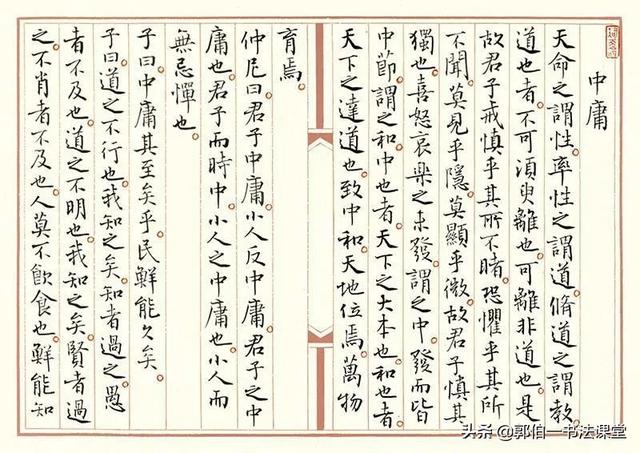 中庸
天命之謂性。率性之謂道。脩道之謂教。
道也者。不可須臾離也。可離非道也。是
故君子戒慎乎其所不睹。恐懼乎其所
不聞。莫見乎隱。莫顯乎微。故君子慎其
獨也。喜怒哀樂之未發。謂之中。發而皆
中節。謂之和。中也者。天下之大本也。和也者。
天下之達道也。致中和。天地位焉。萬物
育焉。
仲尼曰。君子中庸。小人反中庸。君子之中
庸也。君子而時中。小人之中庸也。小人而
無忌憚也。
子曰。中庸其至矣乎。民鮮能久矣。
子曰。道之不行也。我知之矣。知者過之。愚
者不及也。道之不明也。我知之矣。賢者過
之。不肖者不及也。人莫不飲食也。鮮能知
头条 @郭伯一书法课堂